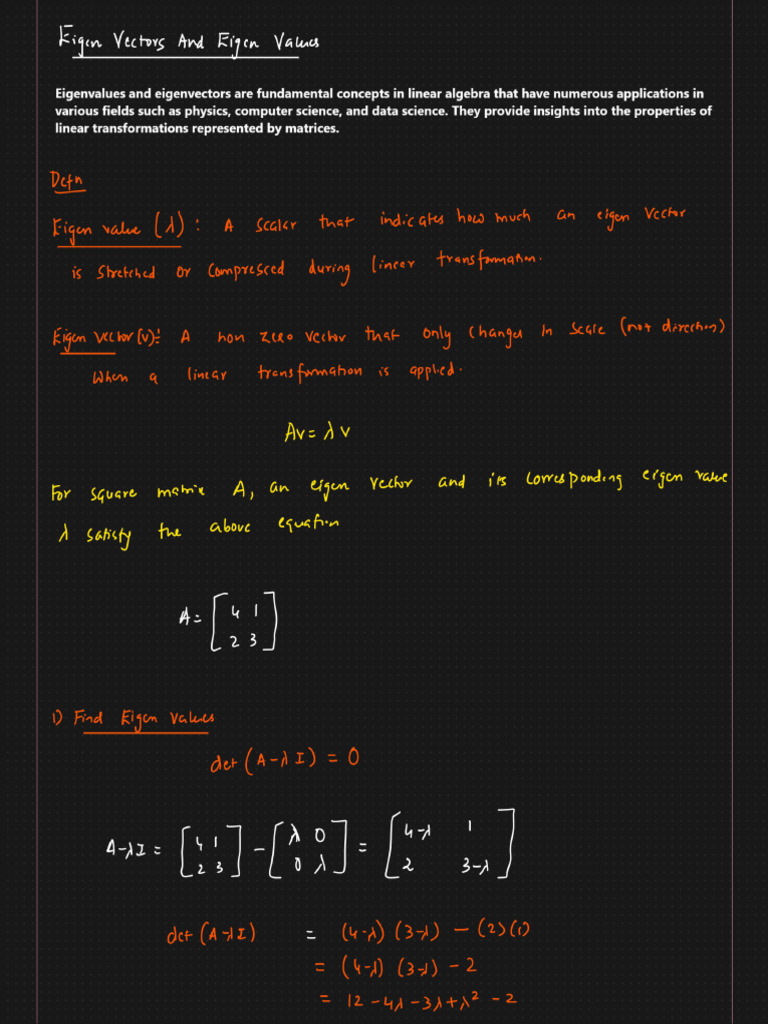 Eigen Vectors And Eigen Values
Eigenvalues and eigenvectors are fundamental concepts in linear algebra that have numerous applications in
various fields such as physics, computer science, and data science. They provide insights into the properties of
linear transformations represented by matrices.
Defn
Eigen value (λ) : A scalar that indicates how much an eigen vector
is stretched or compressed during linear transformation.
Eigen vector (v): A non zero vector that only changes in scale (not direction)
When a linear transformation is applied.
Av = λ v
For square matrix A, an eigen vector and its corresponding eigen value
λ satisfy the above equation
A = [4 1
2 3]
1) Find Eigen Values
det (A - λ I) = 0
A - λI = [4 1 2 3] - [λ 0 0 λ] = [4-λ 1 2 3-λ]
det (A - λI) = (4-λ) (3-λ) - (2)(1)
= (4-λ) (3-λ) - 2
= 12 - 4λ - 3λ + λ² - 2